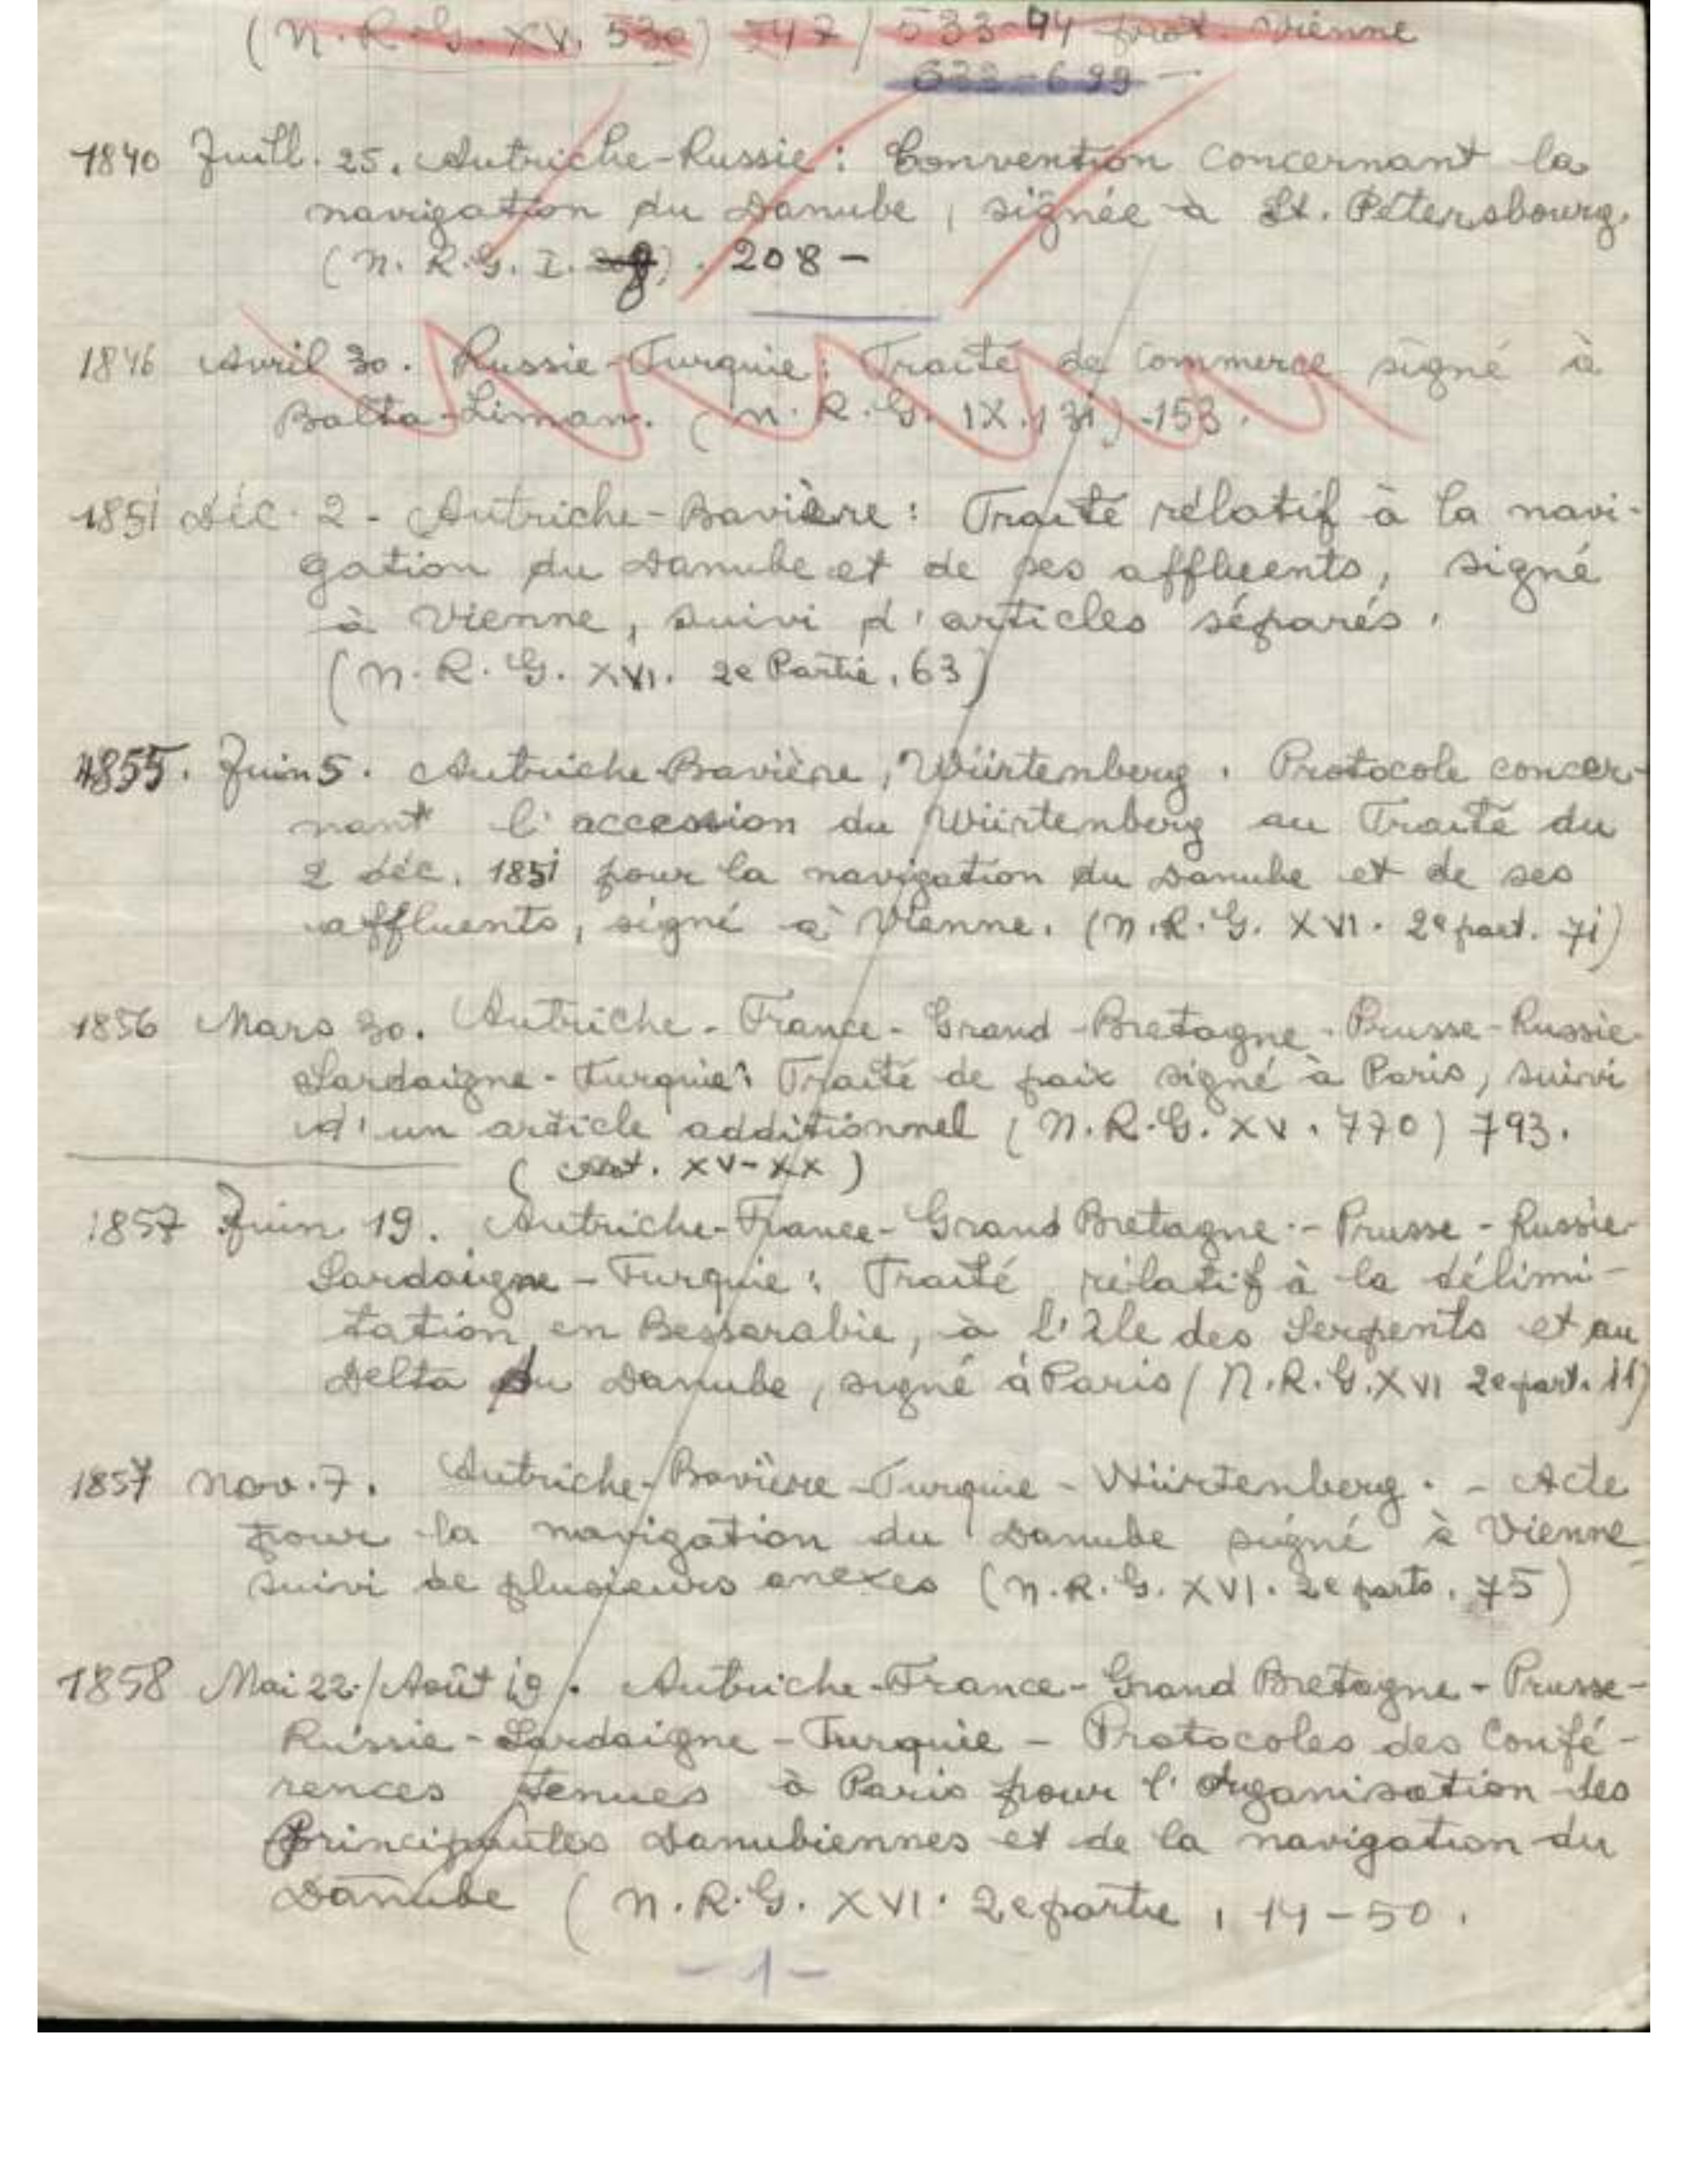 (N. R. G. XV. 530) 747 / 533-94 prot. Vienne
633-699 -
1840 Juill. 25. Autriche-Russie: Convention concernant la
navigation du Danube, signée à St. Pétersbourg.
(N. R. G. I. ) . 208 -
1846 Avril 30. Russie-Turquie: Traité de Commerce signé à
Balta-Liman. (N. R. G. IX. 131) -153.
1851 Déc. 2 - Autriche-Bavière: Traité rélatif à la navi-
gation du Danube et de ses affluents, signé
à Vienne, suivi d'articles séparés.
(N. R. G. XVI. 2e Partie, 63)
1855. Juin 5. Autriche-Bavière, Würtenberg. Protocole concer-
nant l'accession du Würtenberg au Traité du
2 déc. 1851 pour la navigation du Danube et de ses
affluents, signé à Vienne. (N.R.G. XVI. 2e part. 71)
1856 Mars 30. Autriche-France-Grand-Bretagne-Prusse-Russie-
Sardaigne-Turquie: Traité de paix signé à Paris, suivi
d'un article additionnel (N.R.G. XV. 770) 793.
( XV-XX)
1857 Juin 19. Autriche-France-Grand Bretagne-Prusse-Russie-
Sardaigne-Turquie: Traité rélatif à la délimi-
tation en Bessarabie, à l'Ile des Serpents et au
Delta du Danube, signé à Paris (N.R.G.XVI 2e part. 11)
1857 Nov. 7. Autriche-Bavière-Turquie-Würtenberg. - Acte
pour la navigation du Danube signé à Vienne
suivi de plusieurs anexes (N. R. G. XVI. 2e parts. 75)
1858 Mai 22/Août 19. Autriche-France-Grand Bretagne-Prusse-
Russie-Sardaigne-Turquie - Protocoles des Confé-
rences tenues à Paris pour l'Organisation des
Principautes Danubiennes et de la navigation du
Danube (N. R. G. XVI. 2e partie, 14-50.
-1-